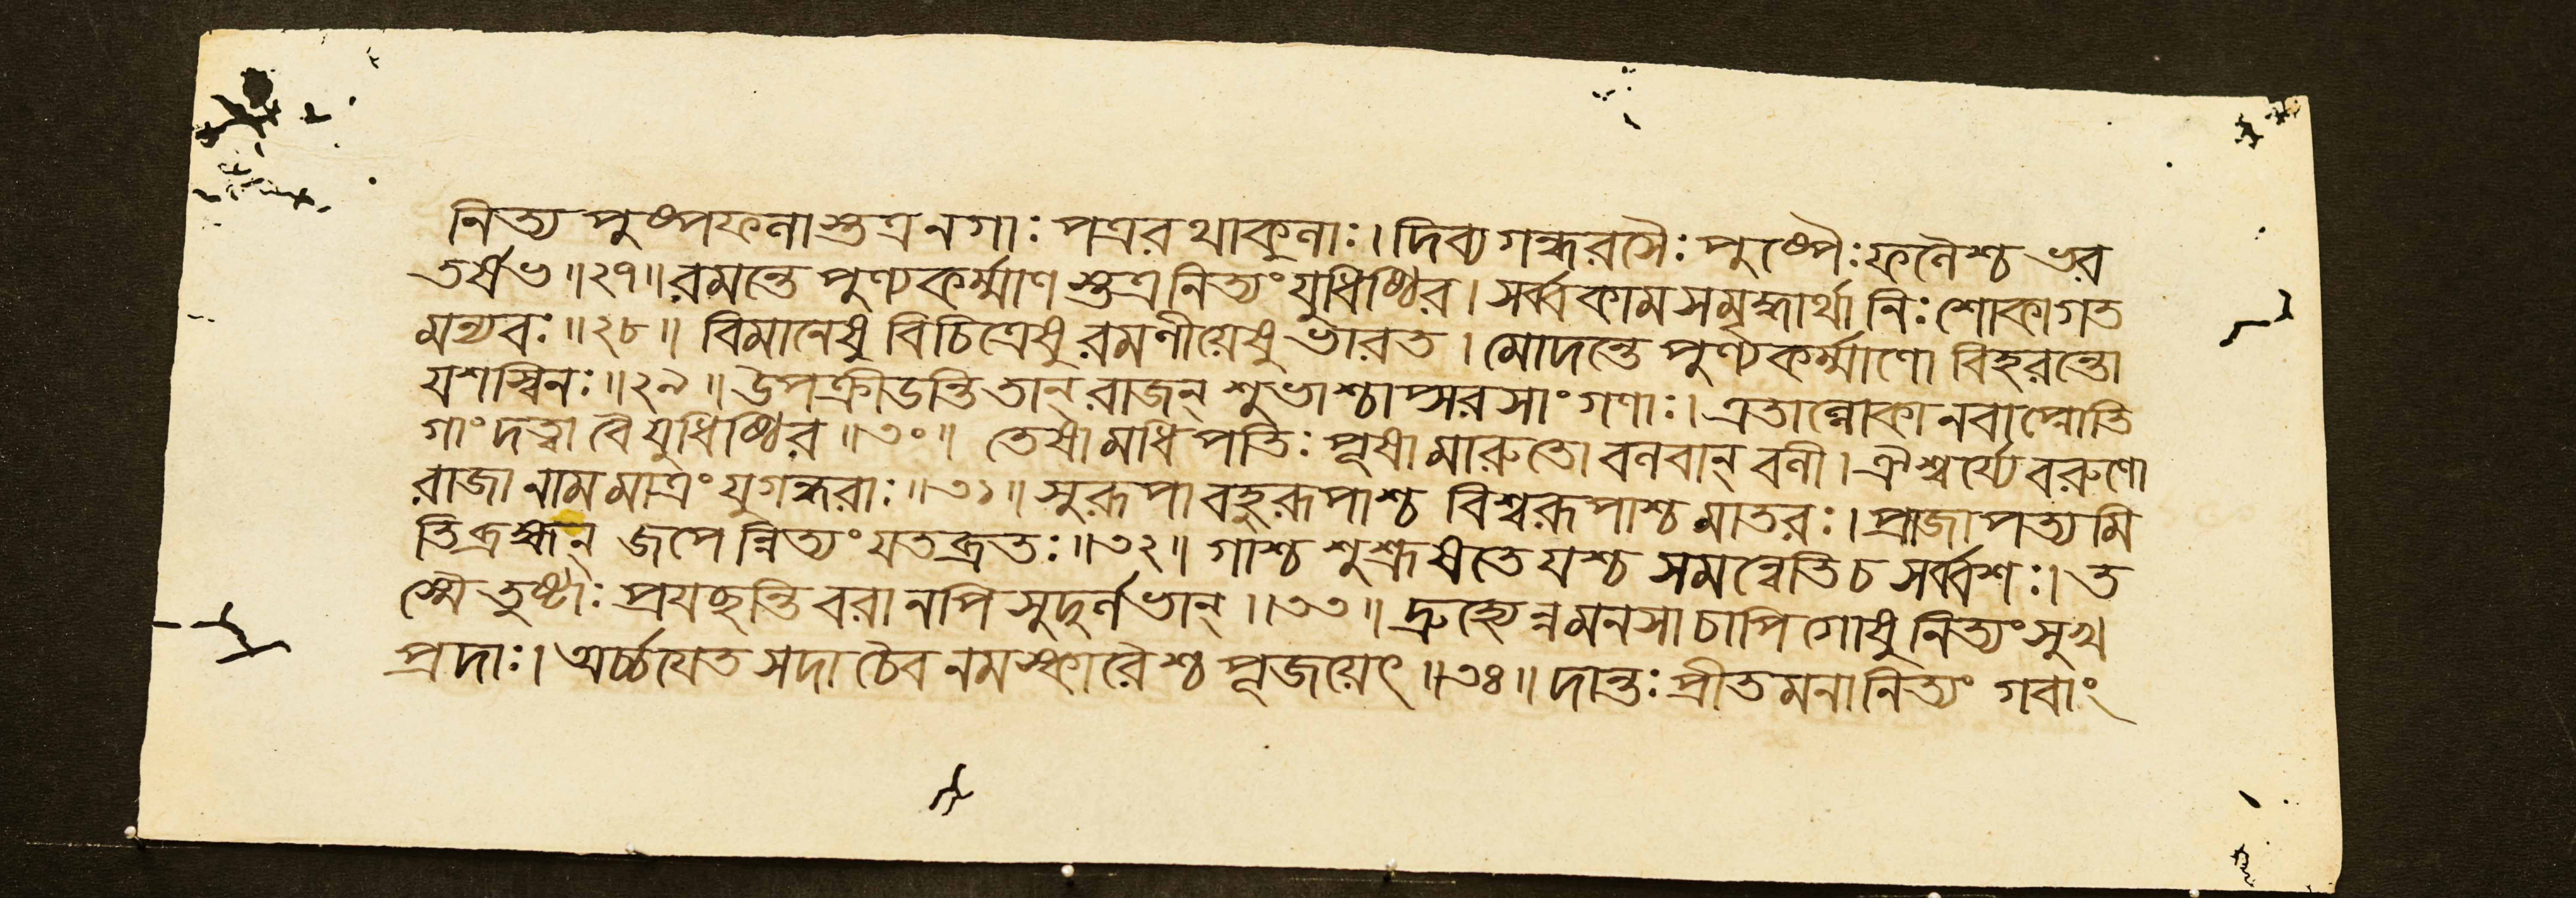 নিত্য পুষ্পফলাস্তত্র নগাঃ পত্ররথাকুলাঃ। দিব্যগন্ধরসৈঃ পুষ্পৈঃ ফলৈশ্চ ভর
তর্ষভ॥২৭॥রমন্তে পুণ্যকর্ম্মাণ স্তত্র নিত্যং যুধিষ্ঠির। সর্ব্বকামসমৃদ্ধার্থা নিঃশোকাগত
মন্যবঃ॥২৮॥ বিমানেষু বিচিত্রেষু রমণীয়েষু ভারত। মোদন্তে পুণ্যকর্ম্মাণো বিহরন্তো
যশস্বিনঃ॥২৯॥উপক্রীডন্তি তান্ রাজন্ শুভাশ্চাপ্সরসাং গণাঃ। এতাল্লোকানবাপ্নোতি
গাং দত্বা বৈ যুধিষ্ঠির॥৩০॥ তেষামধিপতিঃ পূষা মারুতো বলবান্ বলী। ঐশ্বর্য্যে বরুণো
রাজা নামমাত্রং যুগন্ধরাঃ॥৩১॥সুরূপা বহুরূপাশ্চ বিশ্বরূপাশ্চ মাতরঃ। প্রাজাপত্যমি
তি ব্রহ্মন্ জপেন্নিত্যং যতব্রতঃ॥৩২॥ গাশ্চ শুশ্রূষতে যশ্চ সমন্বেতি চ সর্ব্বশঃ। ত
স্মৈ তুষ্টাঃ প্রযছন্তি বরানপি সুদুর্লভান্॥৩৩॥ দ্রুহ্যেন্ন মনসা চাপি গোষু নিত্যং সুখ
প্রদাঃ। অর্চ্চযেত সদা চৈব নমস্কারৈশ্চ পূজয়েৎ॥৩৪॥দান্তঃ প্রীতমনা নিত্যং গবাং